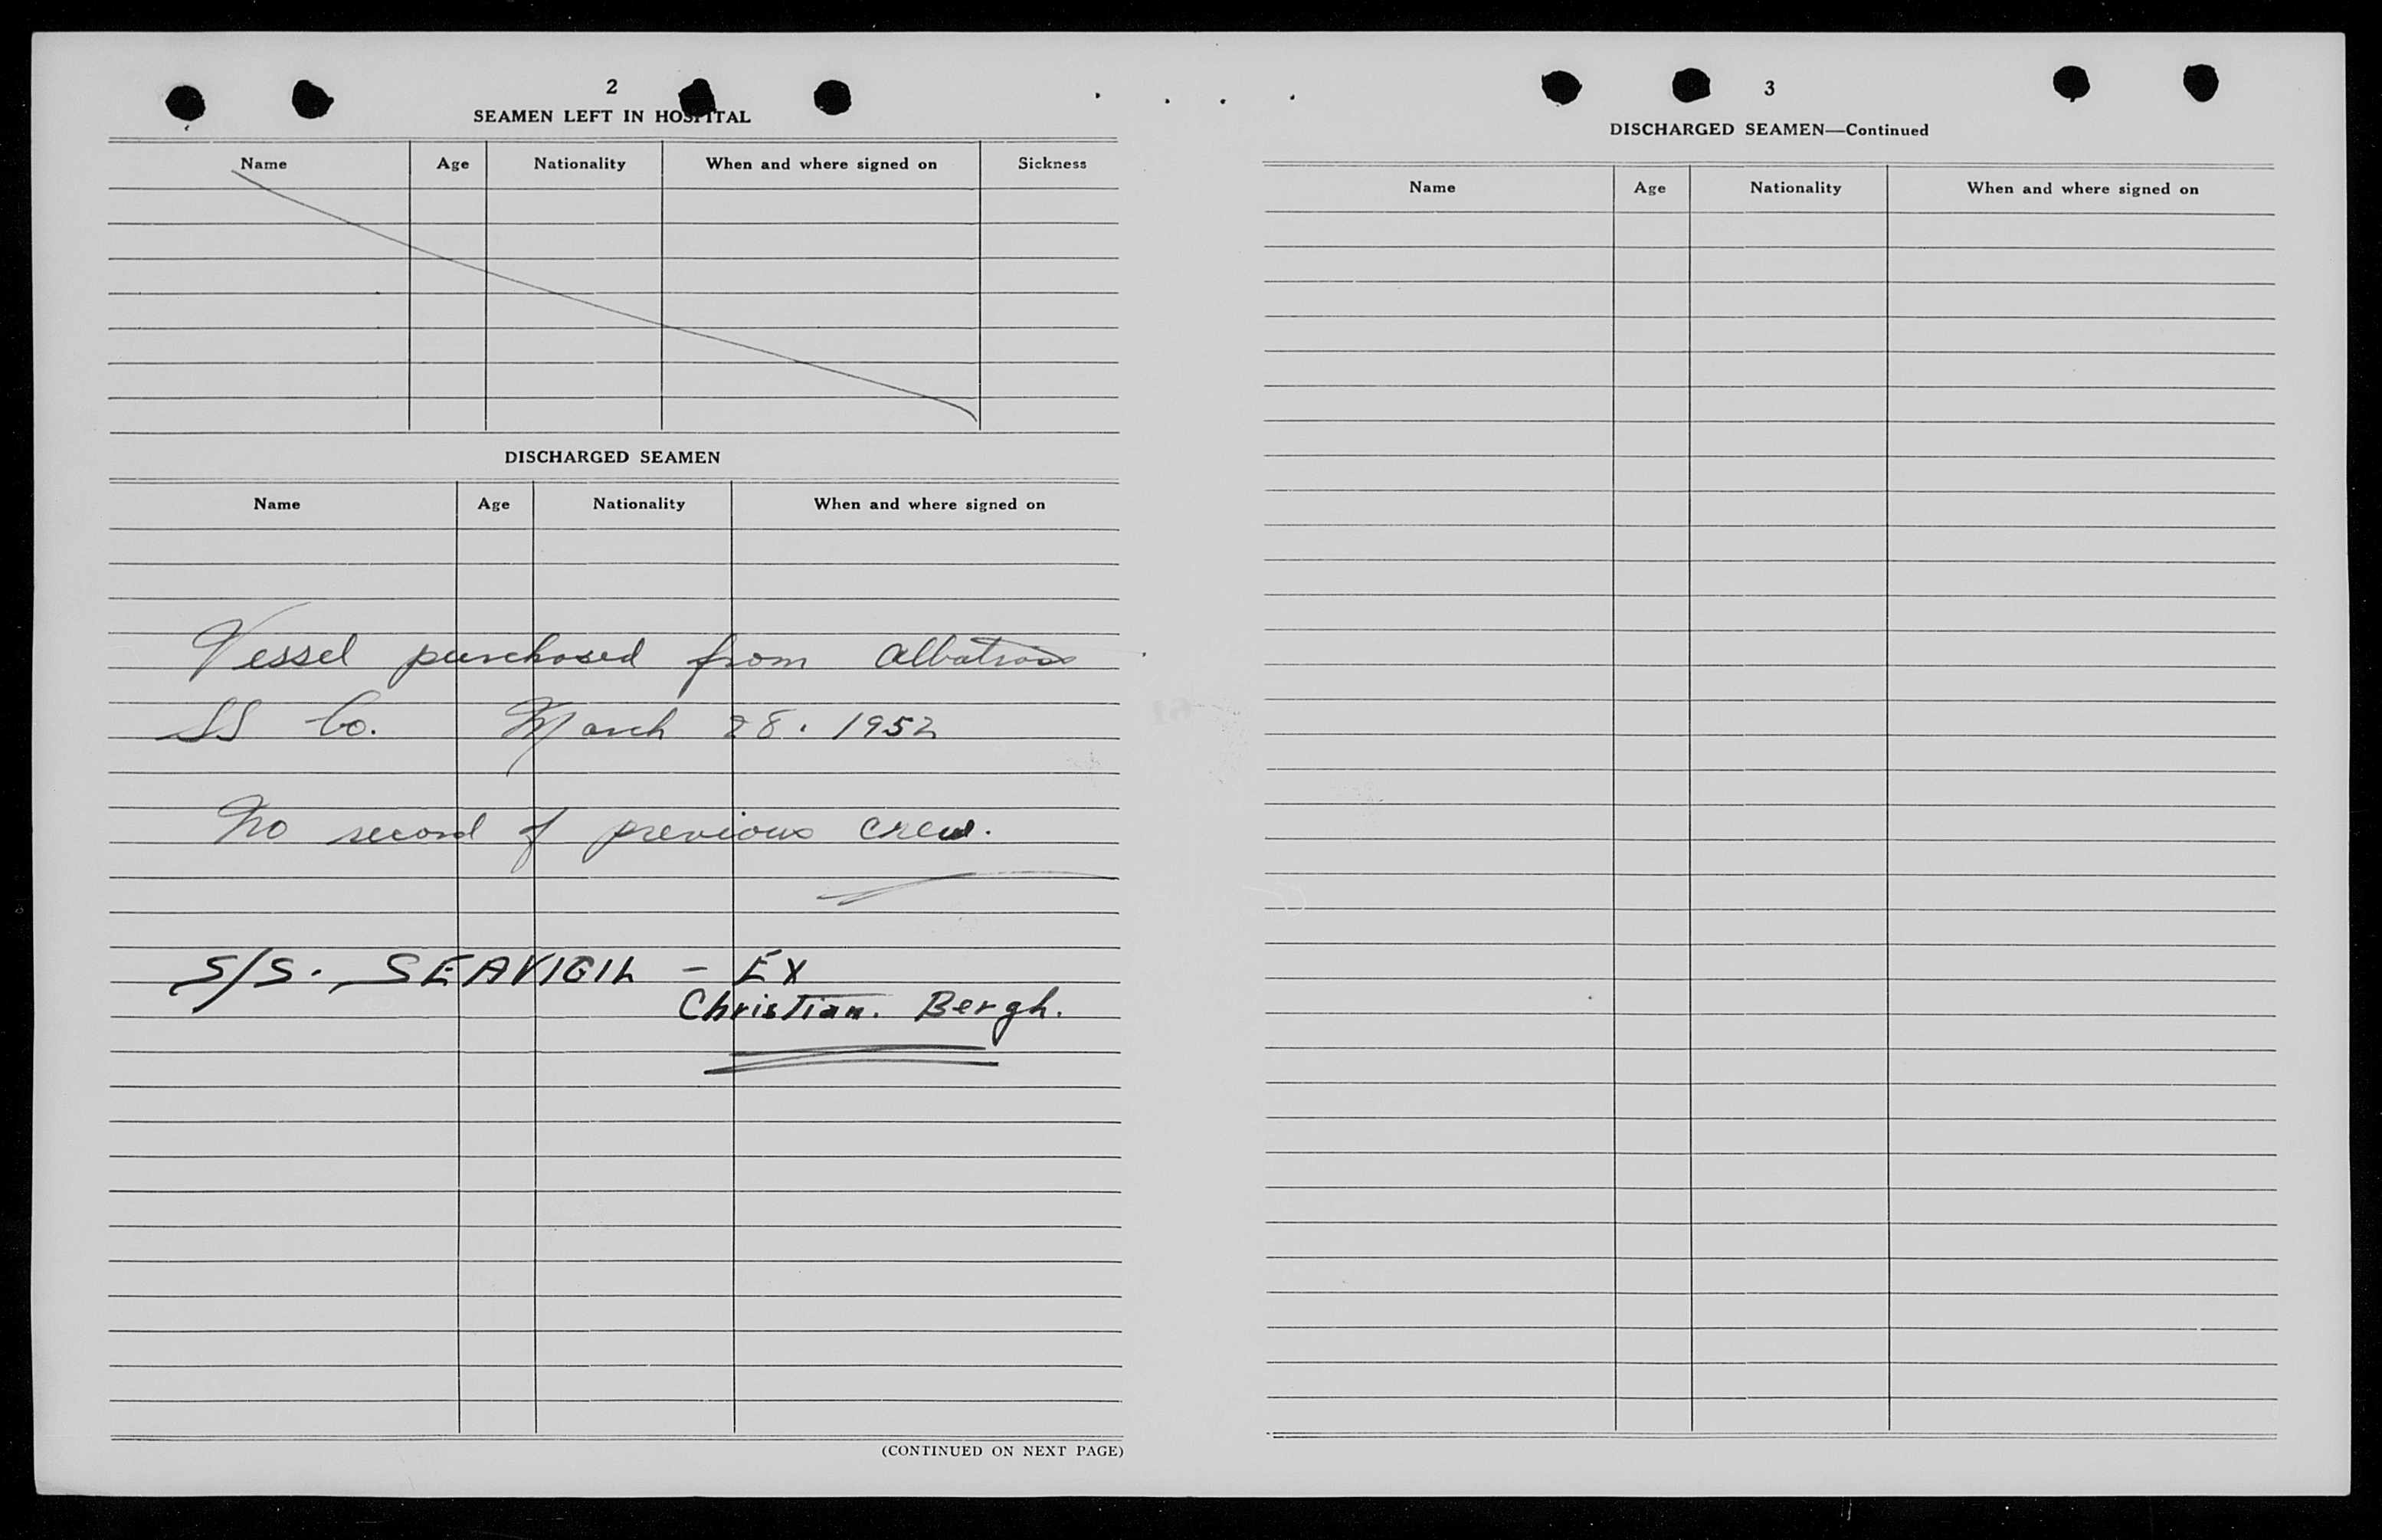 2
SEAMEN LEFT IN HOSPITAL
Name Age Nationality When and where signed on Sickness
DISCHARGED SEAMEN
Name Age Nationality When and where signed on
Vessel purchased from Albatross
SS Co. March 28. 1952
No record of previous crew.
S/S. SEAVIGIL - EX
Christian. Bergh.
(CONTINUED ON NEXT PAGE)
3
DISCHARGED SEAMEN—Continued
Name Age Nationality When and where signed on